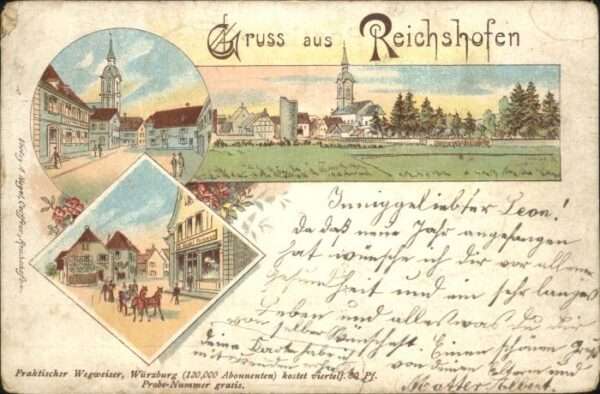 Gruss aus Reichshofen
Inniggeliebter Leon!
da daß neue Jahr angefangen
hat wünsche ich dir vor allem
gesundheit und ein sehr langes
Leben und alles was du dir
von selber Wünschest. Einen schönen Gruß
von deinen Eltern und
Albert.
Praktischer Wegweiser, Würzburg (120,000 Abonnenten) kostet viertelj. 50 Pf.
Probe-Nummer gratis.